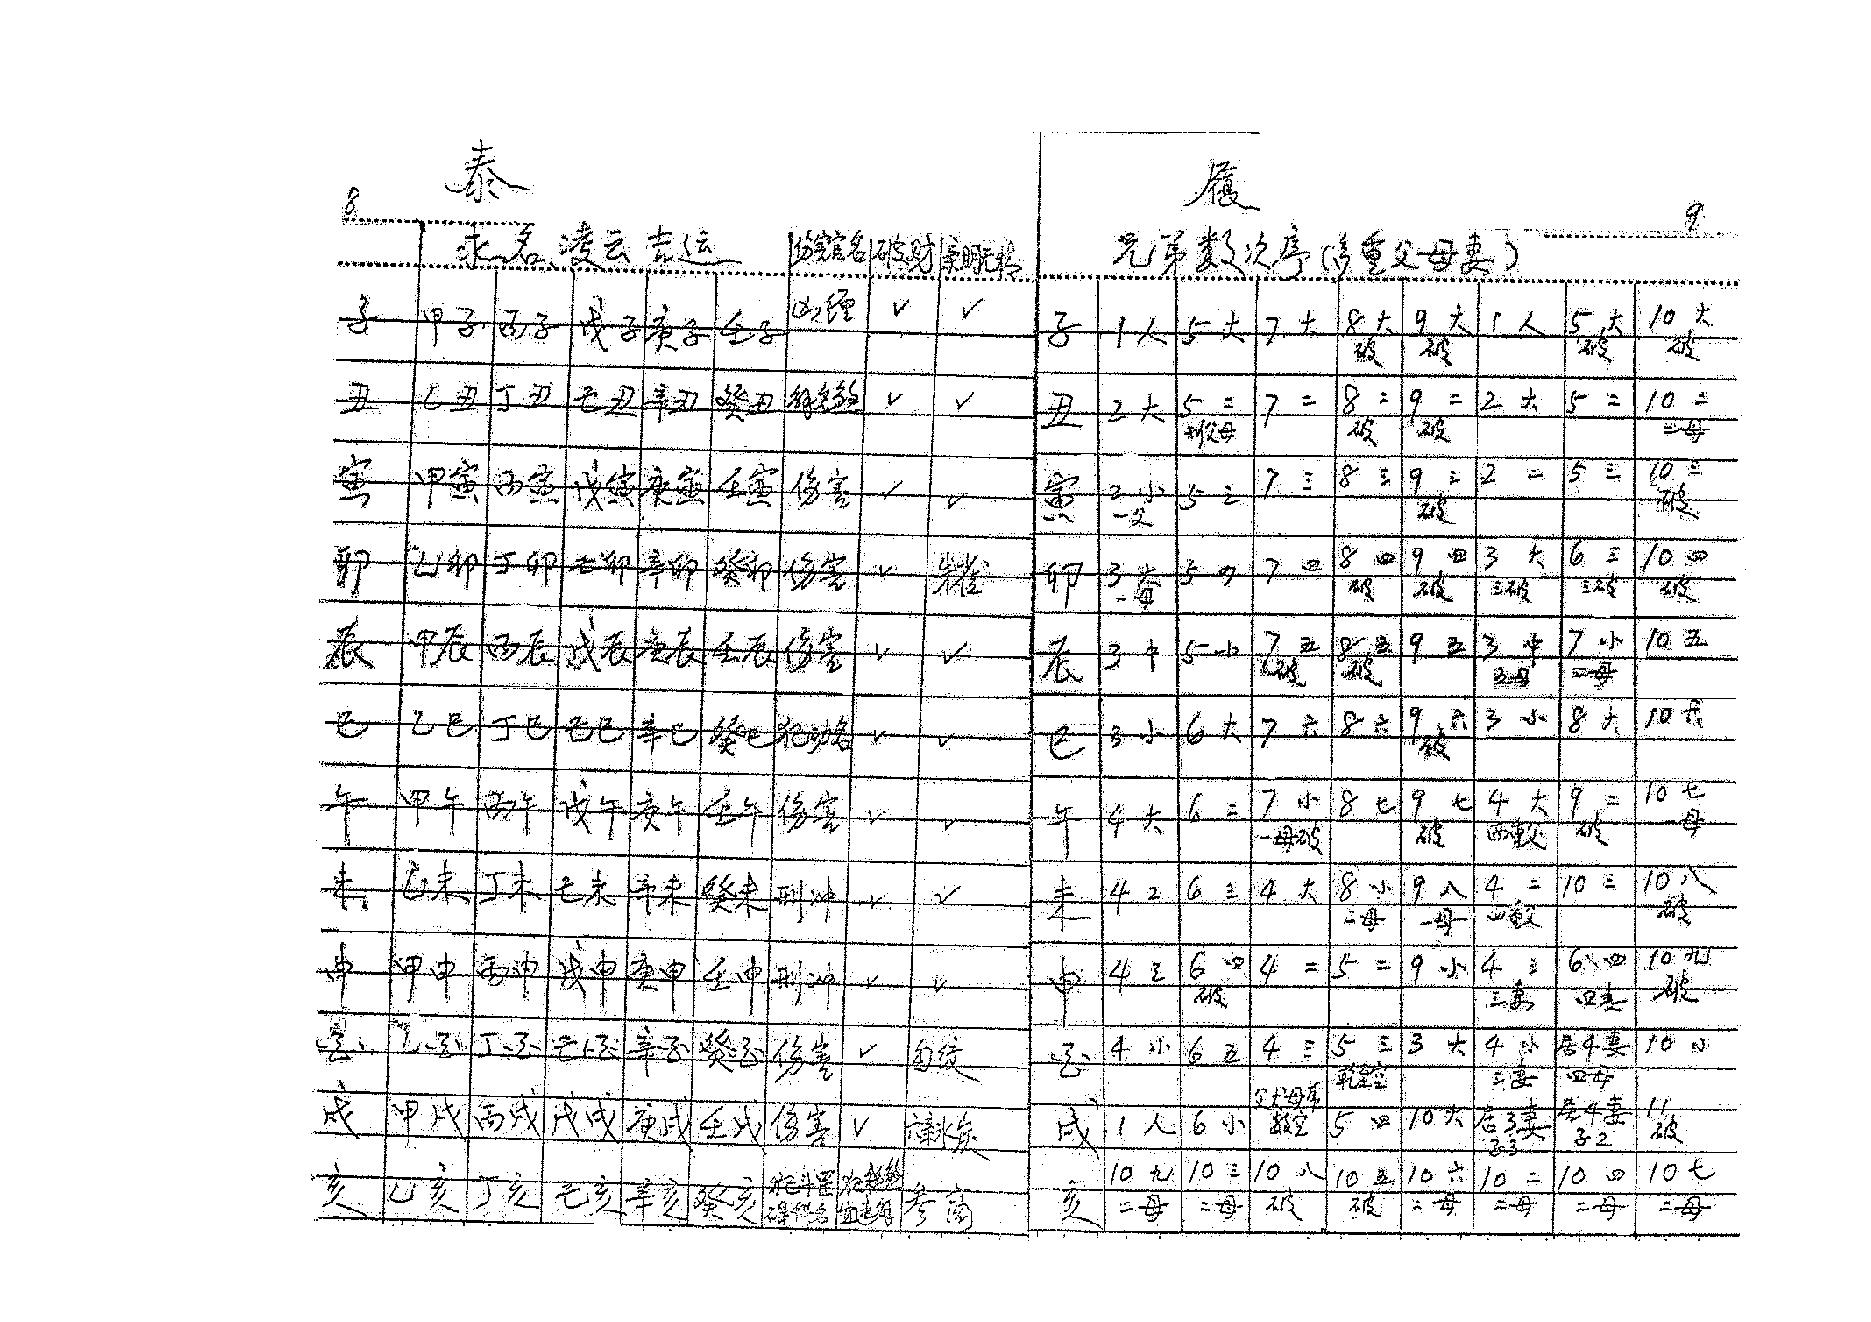 泰
8
求名凌云吉运 伤害官名 破财
子 甲子 丙子 戊子 庚子 壬子 ✓ ✓
丑 乙丑 丁丑 己丑 辛丑 癸丑 ✓ ✓
寅 甲寅 丙寅 戊寅 庚寅 壬寅 伤害 ✓ ✓
卯 乙卯 丁卯 己卯 辛卯 癸卯 伤害 ✓ 朱雀
辰 甲辰 丙辰 戊辰 庚辰 壬辰 伤害 ✓ ✓
巳 乙巳 丁巳 己巳 辛巳 癸巳 ✓ ✓
午 甲午 丙午 戊午 庚午 壬午 伤害 ✓ ✓
未 乙未 丁未 己未 辛未 癸未 刑冲 ✓ ✓
申 甲申 丙申 戊申 庚申 壬申 刑冲 ✓ ✓
酉 乙酉 丁酉 己酉 辛酉 癸酉 伤害 ✓ 勾绞
戌 甲戌 丙戌 戊戌 庚戌 壬戌 伤害 ✓
亥 乙亥 丁亥 己亥 辛亥 癸亥
履
9
兄弟数次序(多重父母妻)
子 1人 5大 7大 8大 9大 1人 5大 10大
破 破 破 破
丑 2大 5二 7二 8二 9二 2大 5二 10二
破 破 二母
寅 2小 5三 7三 8三 9三 2二 5三 10三
一父 破 破
卯 3大 5四 7四 8四 9四 3大 6三 10四
一母 破 破 三破 三破 破
辰 3中 5小 7五 8五 9五 3中 7小 10五
破 破 二母 二母
巳 3小 6大 7六 8六 9六 3小 8大 10六
破
午 4大 6二 7小 8七 9七 4大 9二 10七
一母破 破 破 一母
未 4二 6三 4大 8小 9八 4二 10三 10八
二母 一母 破
申 4三 6四 4二 5二 9小 4三 6四 10九
破 三妻 四妻 破
酉 4小 6五 4三 5三 3大 4小 居4妻 10小
三妻 四母
戌 1人 6小 5四 10大 居3妻 居4妻 11
子3 子2 破
亥 10九 10三 10八 10五 10六 10二 10四 10七
二母 二母 破 破 二母 二母 二母 二母